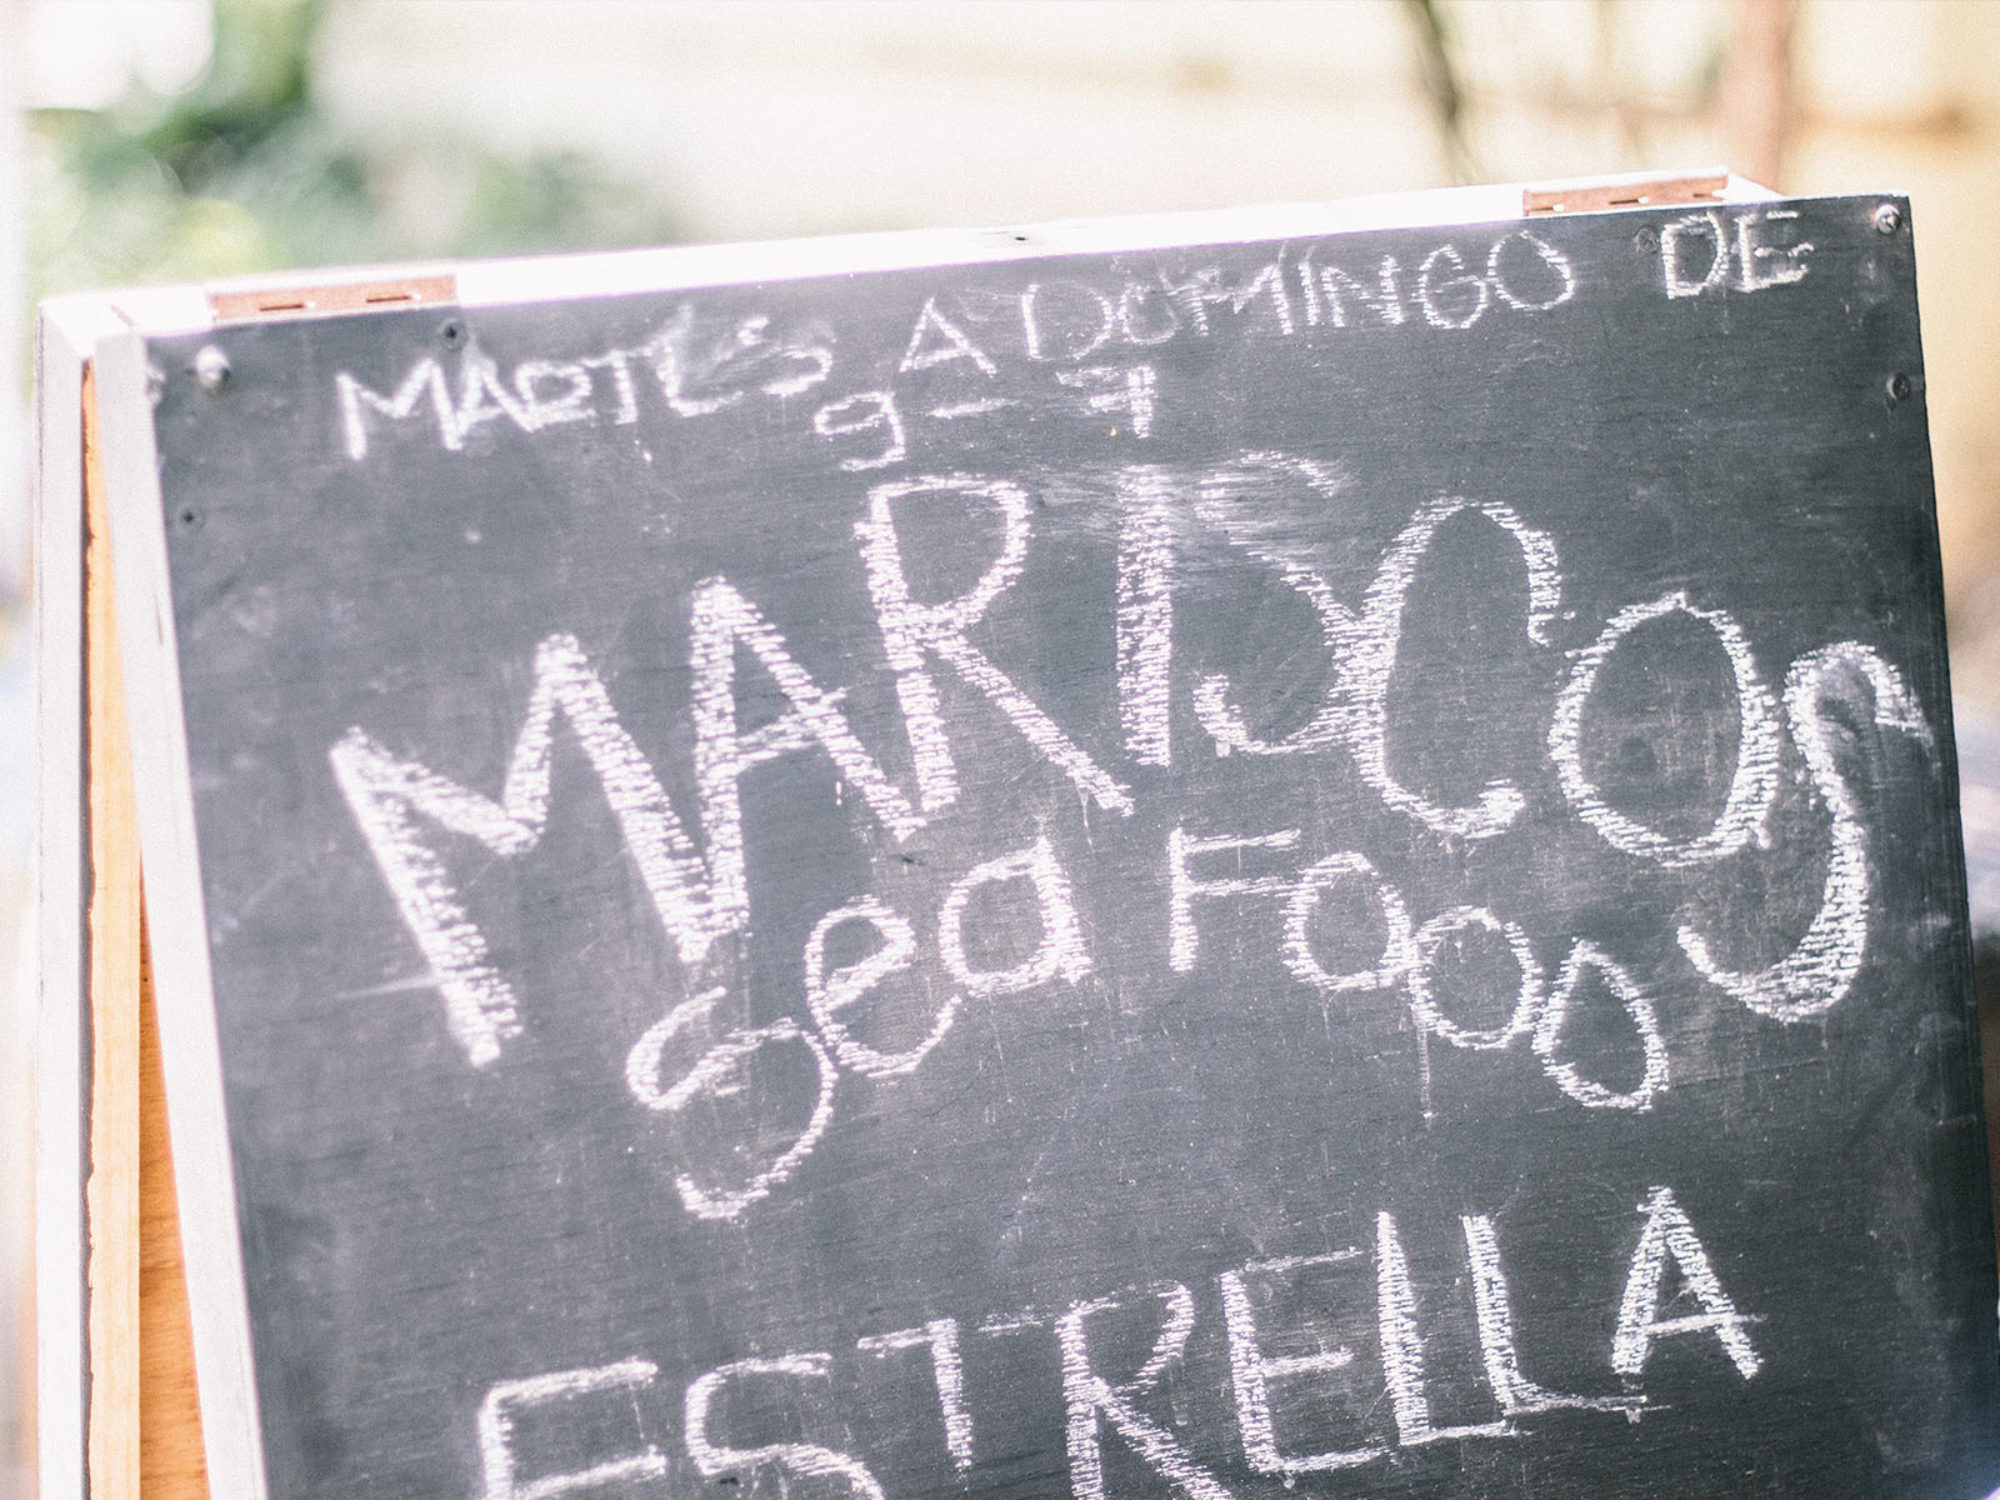 MARTES A DOMINGO DE
9-7
MARISCOS
Sea Food
ESTRELLA